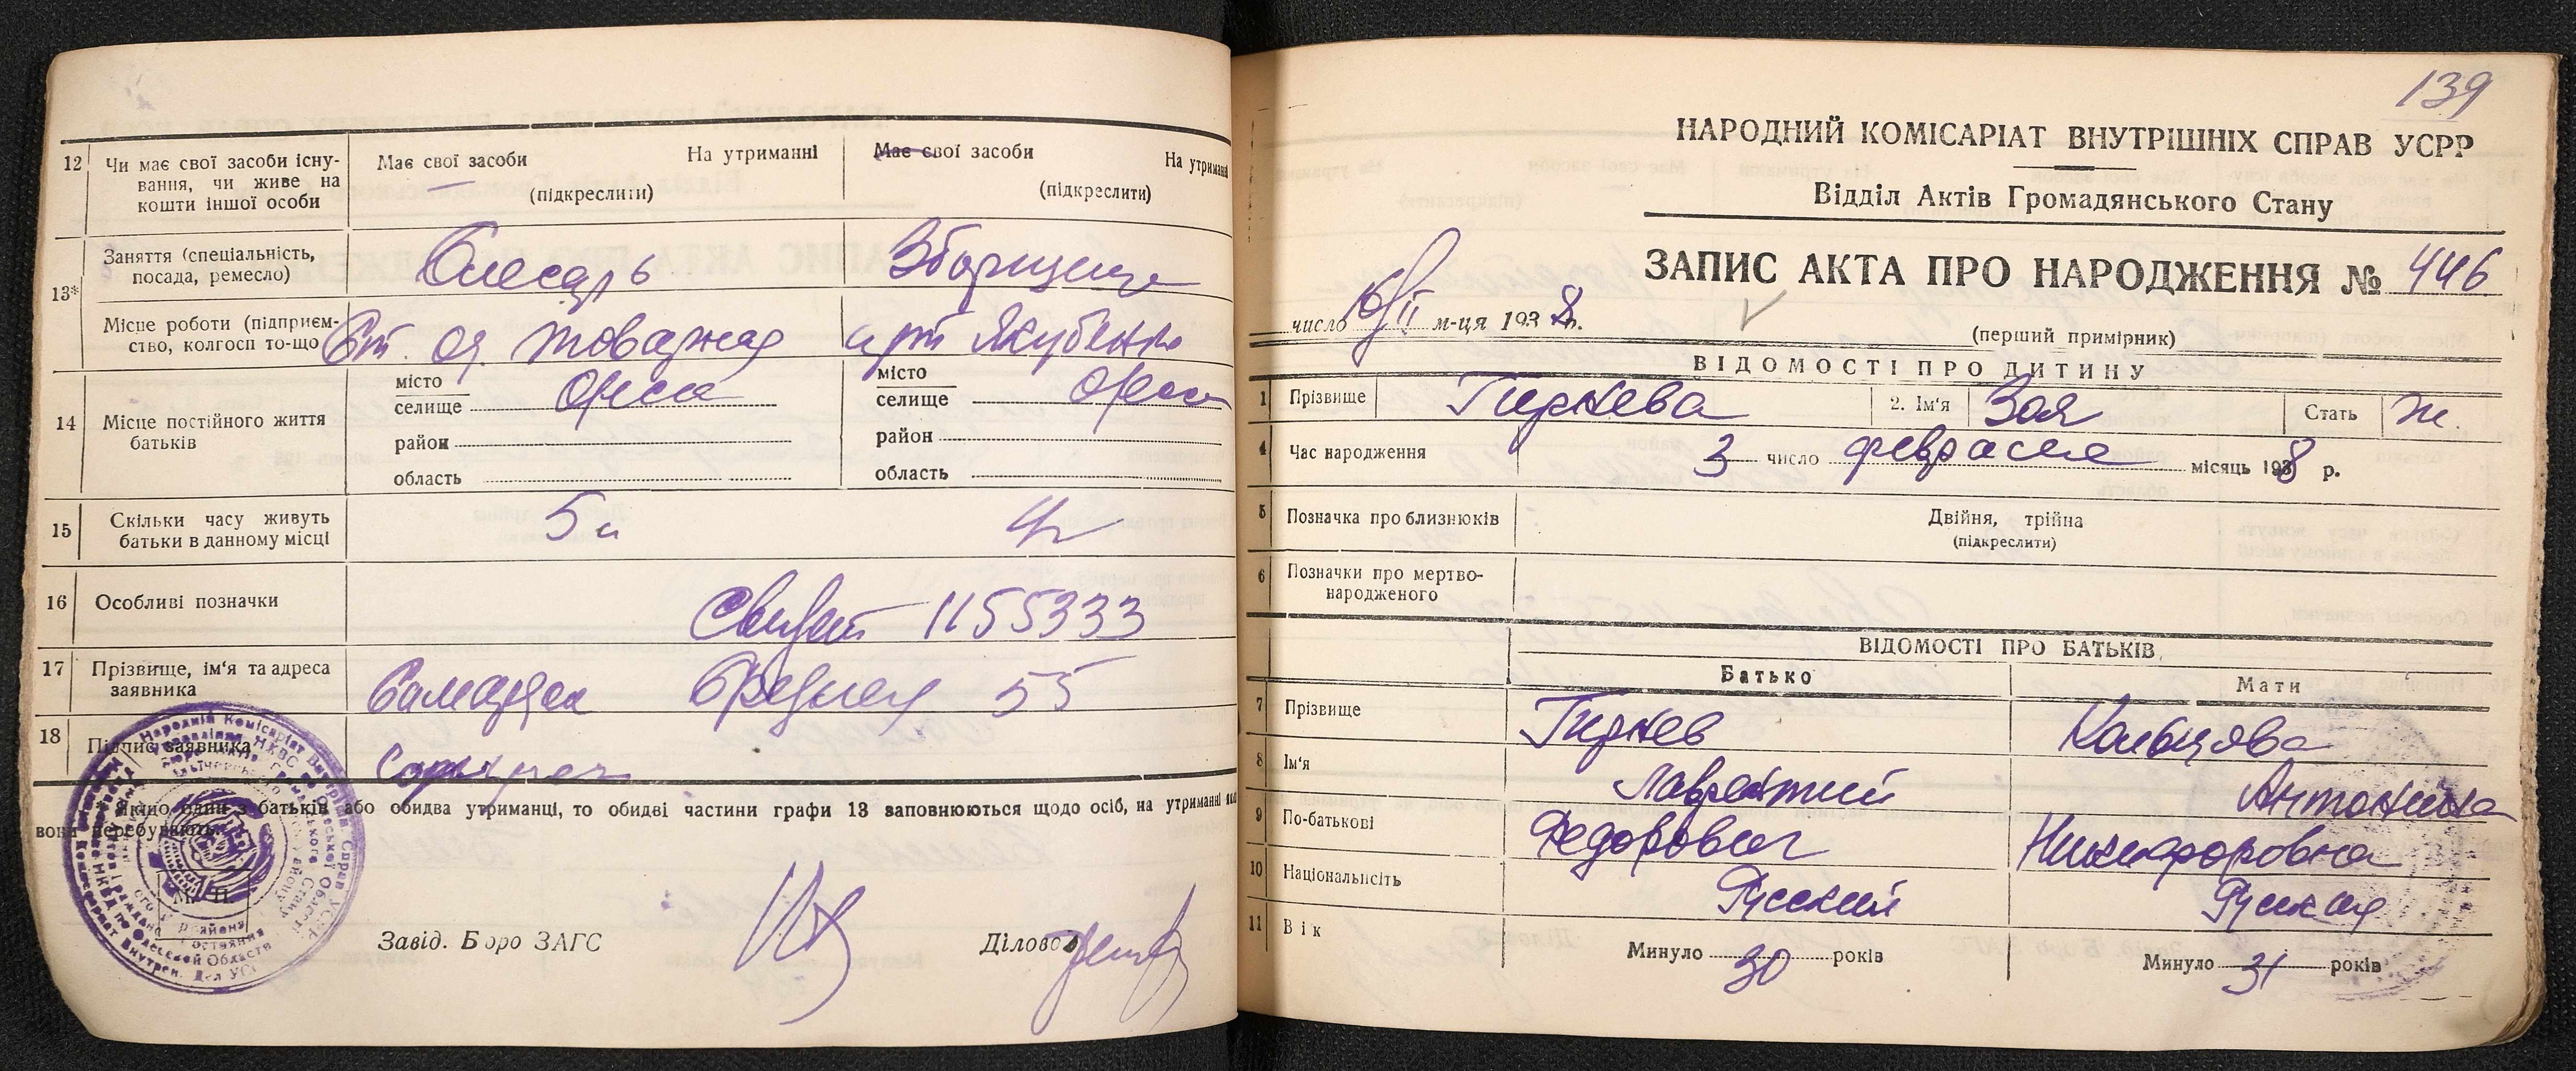 12 Чи має свої засоби існу-
вання, чи живе на
кошти іншої особи
Має свої засоби На утриманні
(підкреслити)
Має свої засоби На утриманні
(підкреслити)
13*
Заняття (спеціальність,
посада, ремесло)
Слесарь Зборщица
Місце роботи (підприєм-
ство, колгосп то-що
Ст. Од. Товарная арт Якубенко
14 Місце постійного життя
батьків
місто
селище Одесса
район
область
місто
селище Одесса
район
область
15 Скільки часу живуть
батьки в данному місці
5 л 4 г
16 Особливі позначки
Свидет 1155333
17 Прізвище, ім'я та адреса
заявника
Средняя 55
18 Підпис заявника
* Якщо один з батьків або обидва утриманці, то обидві частини графи 13 заповнюються щодо осіб, на утриманні
вони перебувають.
М. П.
Завід. Бюро ЗАГС Діловод
139
НАРОДНИЙ КОМІСАРІАТ ВНУТРІШНІХ СПРАВ УСРР
Відділ Актів Громадянського Стану
ЗАПИС АКТА ПРО НАРОДЖЕННЯ № 446
число 10/II м-ця 1938 р.
(перший примірник)
ВІДОМОСТІ ПРО ДИТИНУ
1 Прізвище Гиржева 2. Ім'я Зоя Стать ж.
4 Час народження 3 число февраля місяць 1938 р.
5 Позначка про близнюків Двійня, трійна
(підкреслити)
6 Позначки про мертво-
народженого
ВІДОМОСТІ ПРО БАТЬКІВ
Батько Мати
7 Прізвище Гиржев Кольцова
8 Ім'я Лаврентий Антонина
9 По-батькові Федорович Никифоровна
10 Національність Русский Русская
11 Вік Минуло 30 років Минуло 31 років